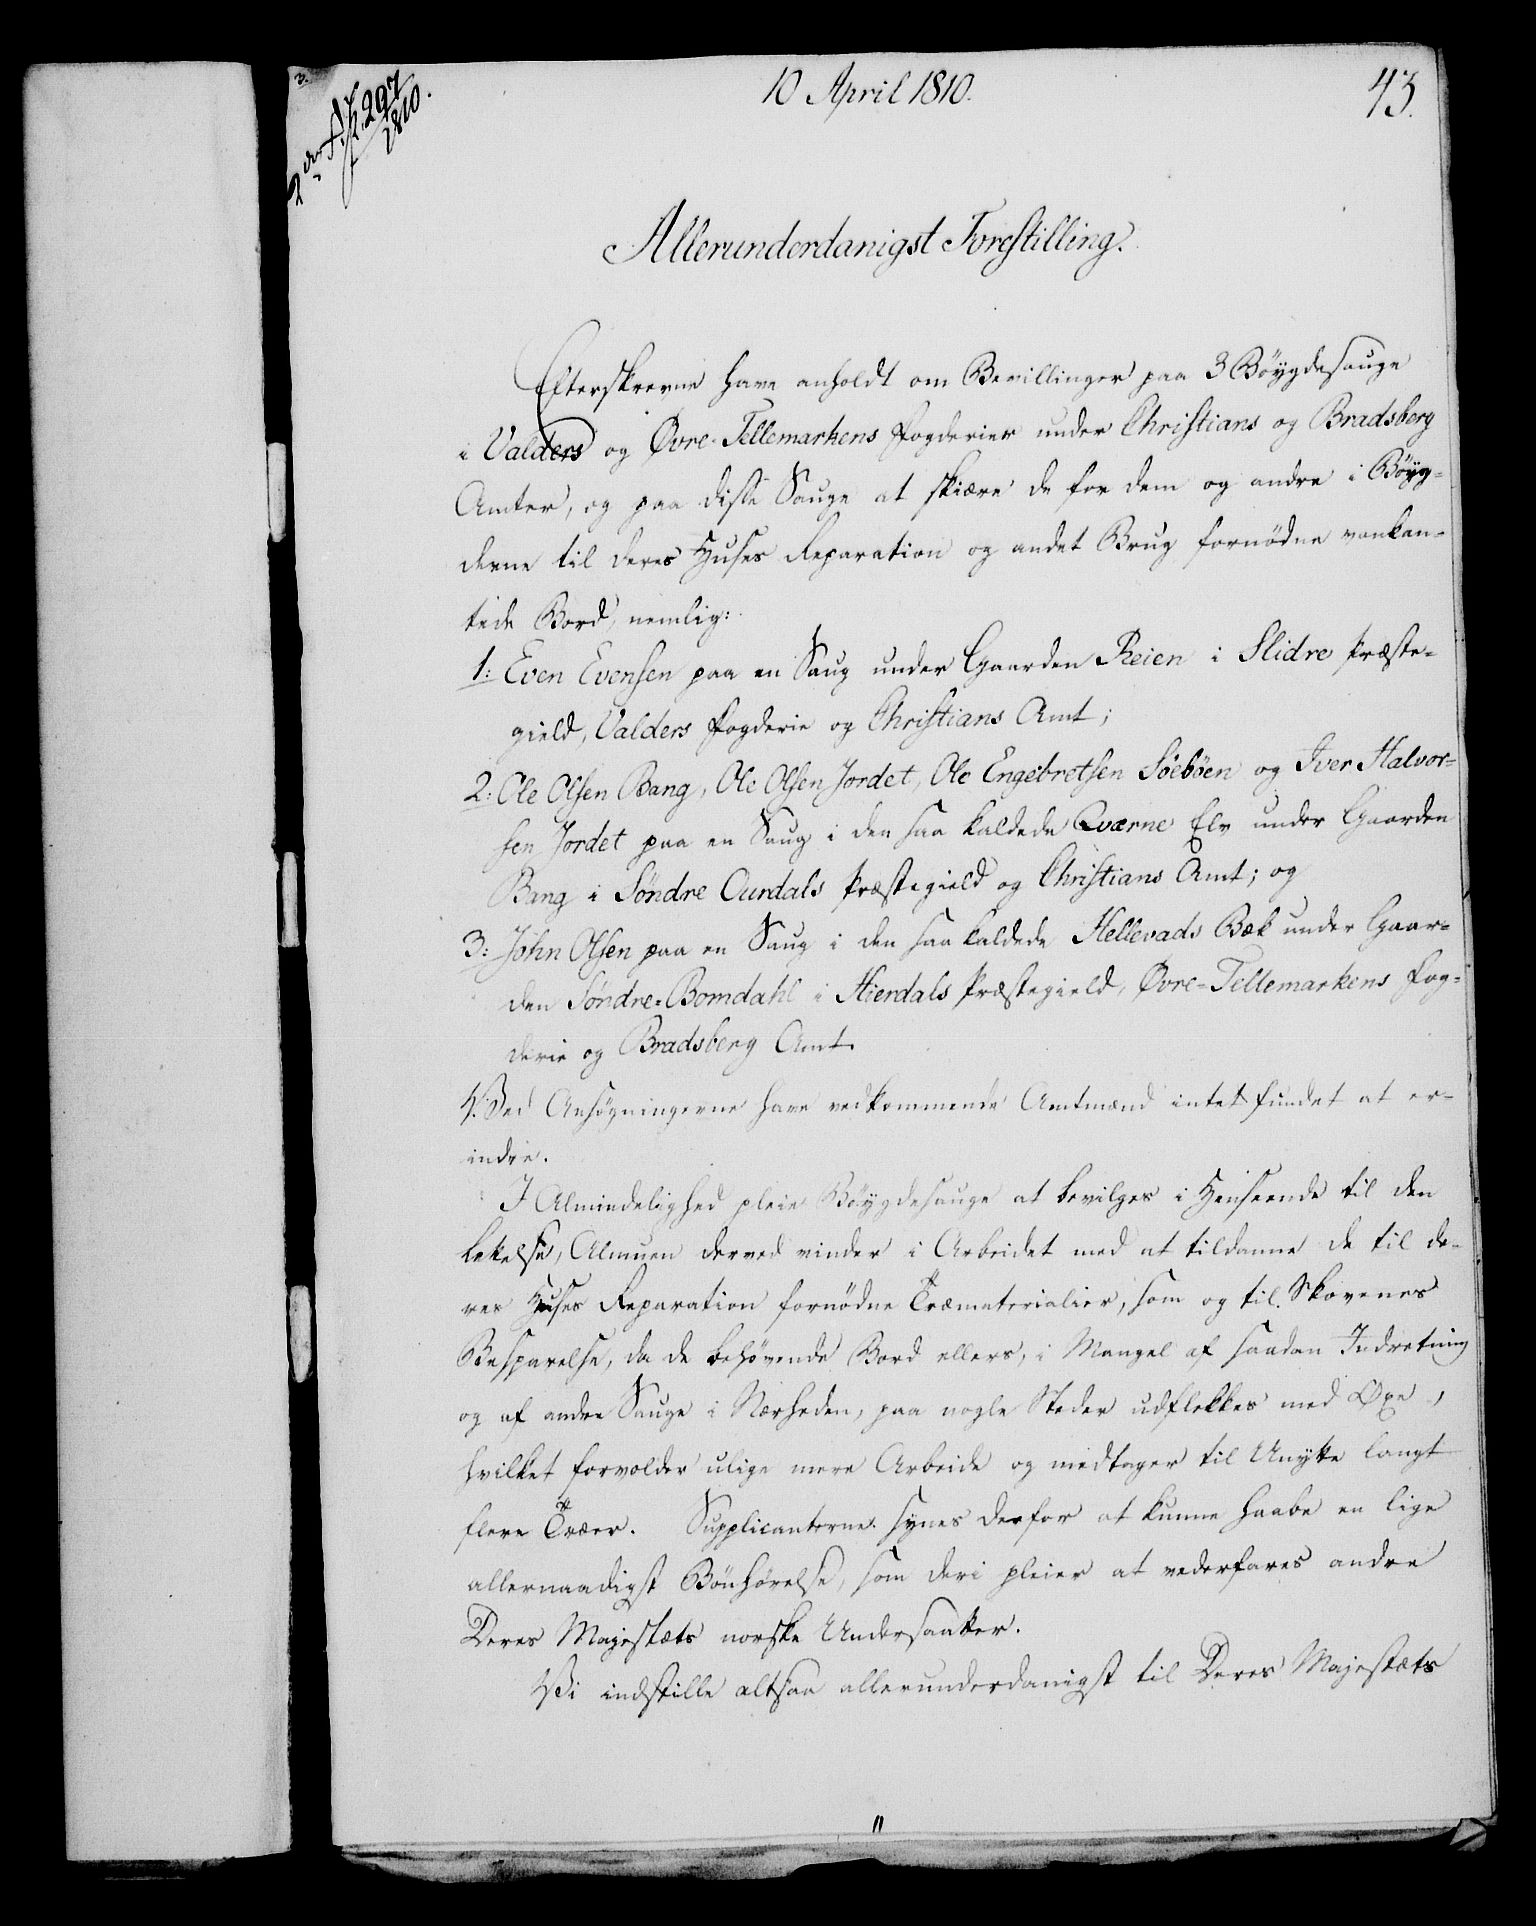 10 April 1810.
43.
Allerunderdanigst Forestilling.
Efterskrevne have anholdt om Bevillinger paa 3 Böygdesauge
i Valders og Øvre-Tellemarkens Fogderier under Christians og Bradsberg
Amter, og paa disse Sauge at skiære de for dem og andre i Böyg-
derne til deres Huses Reparation og andet Brug fornödne vankan-
tede Bord, nemlig:
1: Even Evensen paa en Saug under Gaarden Reien i Slidre Præste-
gield, Valders Fogderie og Christians Amt;
2: Ole Olsen Bang, Ole Olsen Jordet, Ole Engebretsen Söeböen og Iver Halvor-
sen Jordet paa en Saug i den saa kaldede Qværne Elv under Gaarden
Bang i Söndre Ourdals Præstegield og Christians Amt; og
3: John Olsen paa en Saug i den saa kaldede Hellevads Bæk under Gaar-
den Söndre-Bomdahl i Hierdals Præstegield, Øvre-Tellemarkens Fog-
derie og Bradsberg Amt.
Ved Ansögningerne have vedkommende Amtmænd intet fundet at er-
indre.
I Almindelighed pleie Böygdesauge at bevilges i Henseende til den
Lettelse, Almuen derved vinder i Arbeidet med at tildanne de til de-
res Huses Reparation fornödne Træmaterialier, som og til Skovenes
Besparelse, da de behövende Bord ellers, i Mangel af saadan Indretning
og af andre Sauge i Nærheden, paa nogle Steder udflekkes med Øxe,
hvilket forvolder ulige mere Arbeide og medtager til Unytte langt
flere Træer. Supplicanterne synes derfor at kunne haabe en lige
allernaadigst Bönhörelse, som deri pleier at vederfares andre
Deres Majestæts norske Undersaatter.
Vi indstille altsaa allerunderdanigst til Deres Majestæts